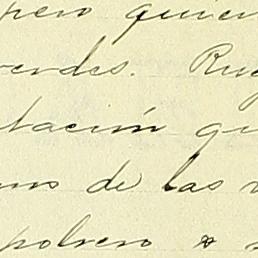 pero quien
verdes. Rug
tación qu
uno de las v
polvero o